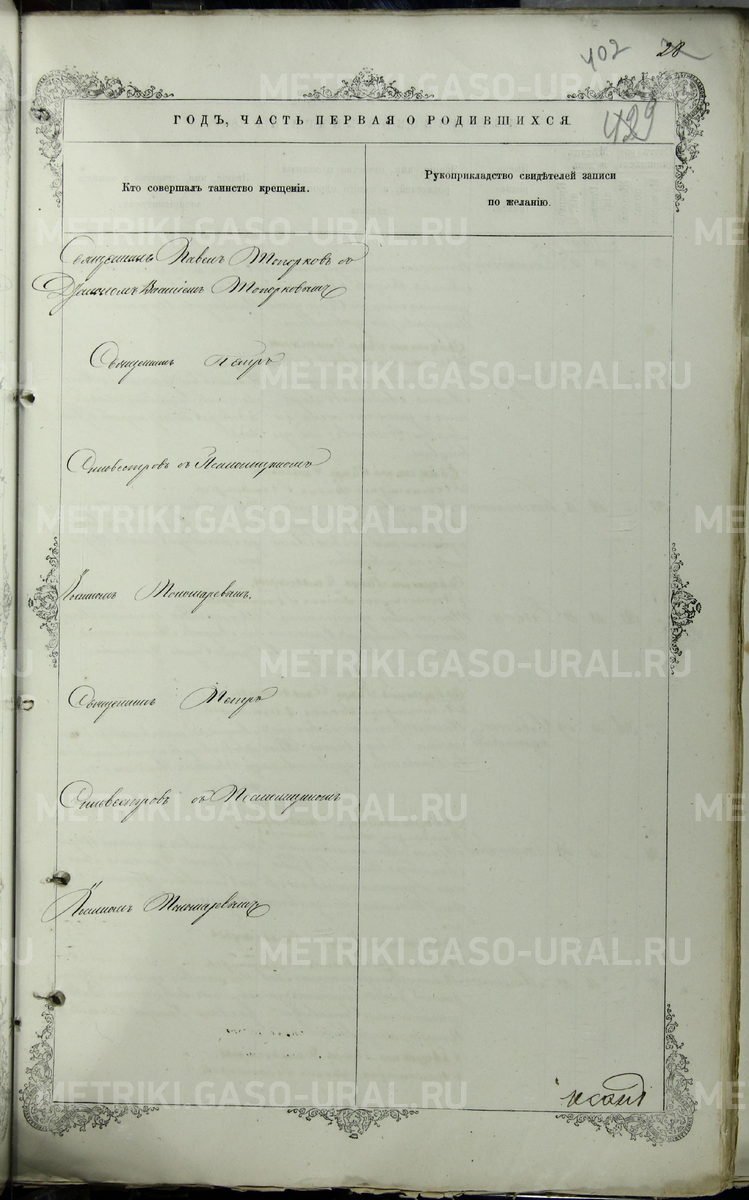 402 28
429
ГОДЪ, ЧАСТЬ ПЕРВАЯ О РОДИВШИХСЯ
Кто совершалъ таинство крещенія.
Рукоприкладство свидѣтелей записи
по желанію.
Священникъ Павелъ Топорковъ съ
Топорковымъ
Священникъ Петръ
Сильвестровъ съ Псаломщикомъ
Пономаревымъ.
Священникъ Петръ
Сильвестровъ съ Псаломщикомъ
Пономаревымъ
METRIKI.GASO-URAL.RU